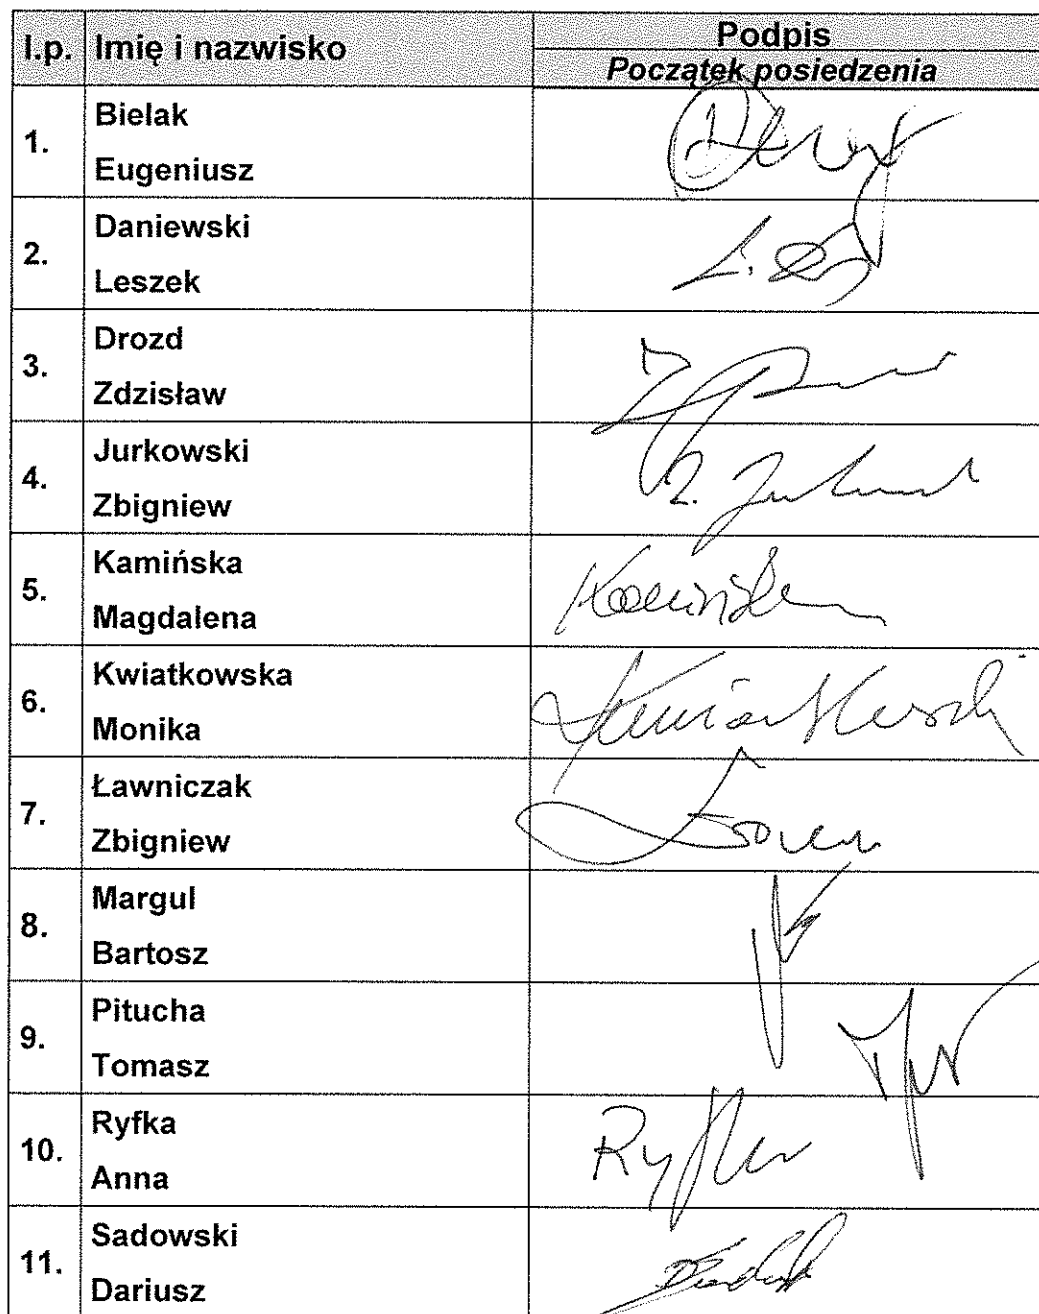 l.p. Imię i nazwisko Podpis
Początek posiedzenia
1. Bielak
Eugeniusz
2. Daniewski
Leszek
3. Drozd
Zdzisław
4. Jurkowski
Zbigniew
Z.
5. Kamińska
Magdalena
Kamińska
6. Kwiatkowska
Monika
7. Ławniczak
Zbigniew
8. Margul
Bartosz
9. Pitucha
Tomasz
10. Ryfka
Anna
Ryfka
11. Sadowski
Dariusz